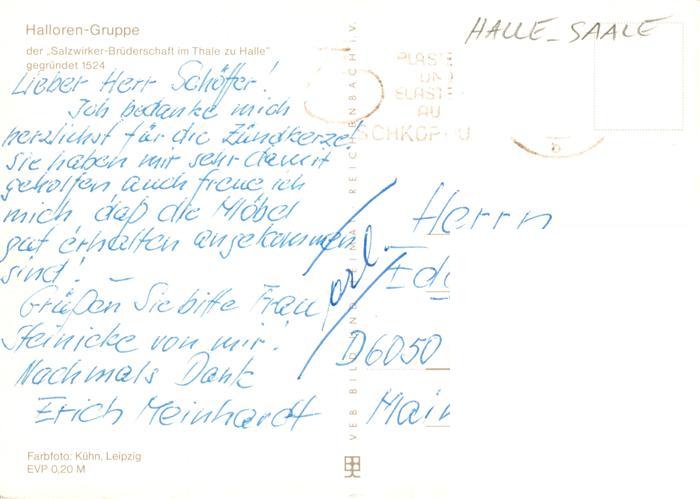 Halloren-Gruppe
der „Salzwirker-Brüderschaft im Thale zu Halle"
gegründet 1524
Lieber Herr Schöffer!
Ich bedanke mich
herzlichst für die Zündkerze,
sie haben mir sehr damit
geholfen auch freue ich
mich daß die Möbel
gut erhalten angekommen
sind!
Grüßen Sie bitte Frau
Steinicke von mir!
Nochmals Dank
Erich Meinhardt
Farbfoto: Kühn, Leipzig
EVP 0,20 M
VEB BILD UND HEIMA REICHENBACH I. V.
erl.
HALLE-SAALE
PLASTE
UND
ELAST
AU
SCHKOP U
Herrn
D6050
Main